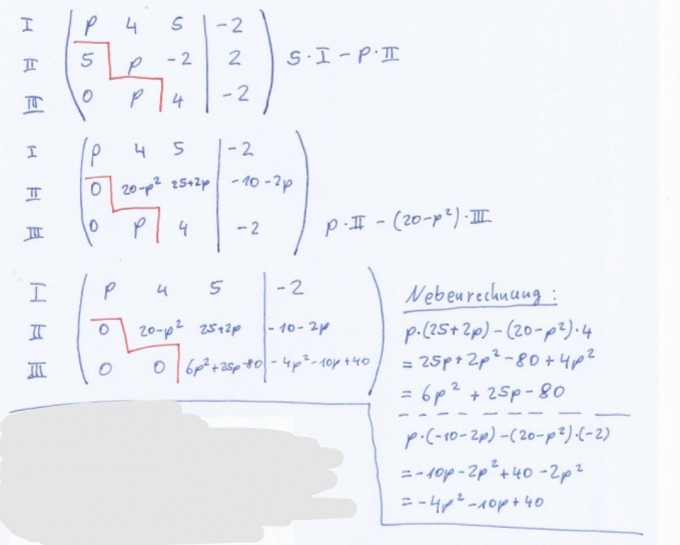 I p 4 5 | -2
II 5 p -2 | 2 5·I - p·II
III 0 p 4 | -2
I p 4 5 | -2
II 0 20-p² 25+2p | -10-2p
III 0 p 4 | -2 p·II - (20-p²)·III
I p 4 5 | -2
II 0 20-p² 25+2p | -10-2p
III 0 0 6p²+25p-80 | -4p²-10p+40
Nebenrechnung:
p·(25+2p)-(20-p²)·4
= 25p+2p²-80+4p²
= 6p²+25p-80
p·(-10-2p)-(20-p²)·(-2)
=-10p-2p²+40-2p²
=-4p²-10p+40